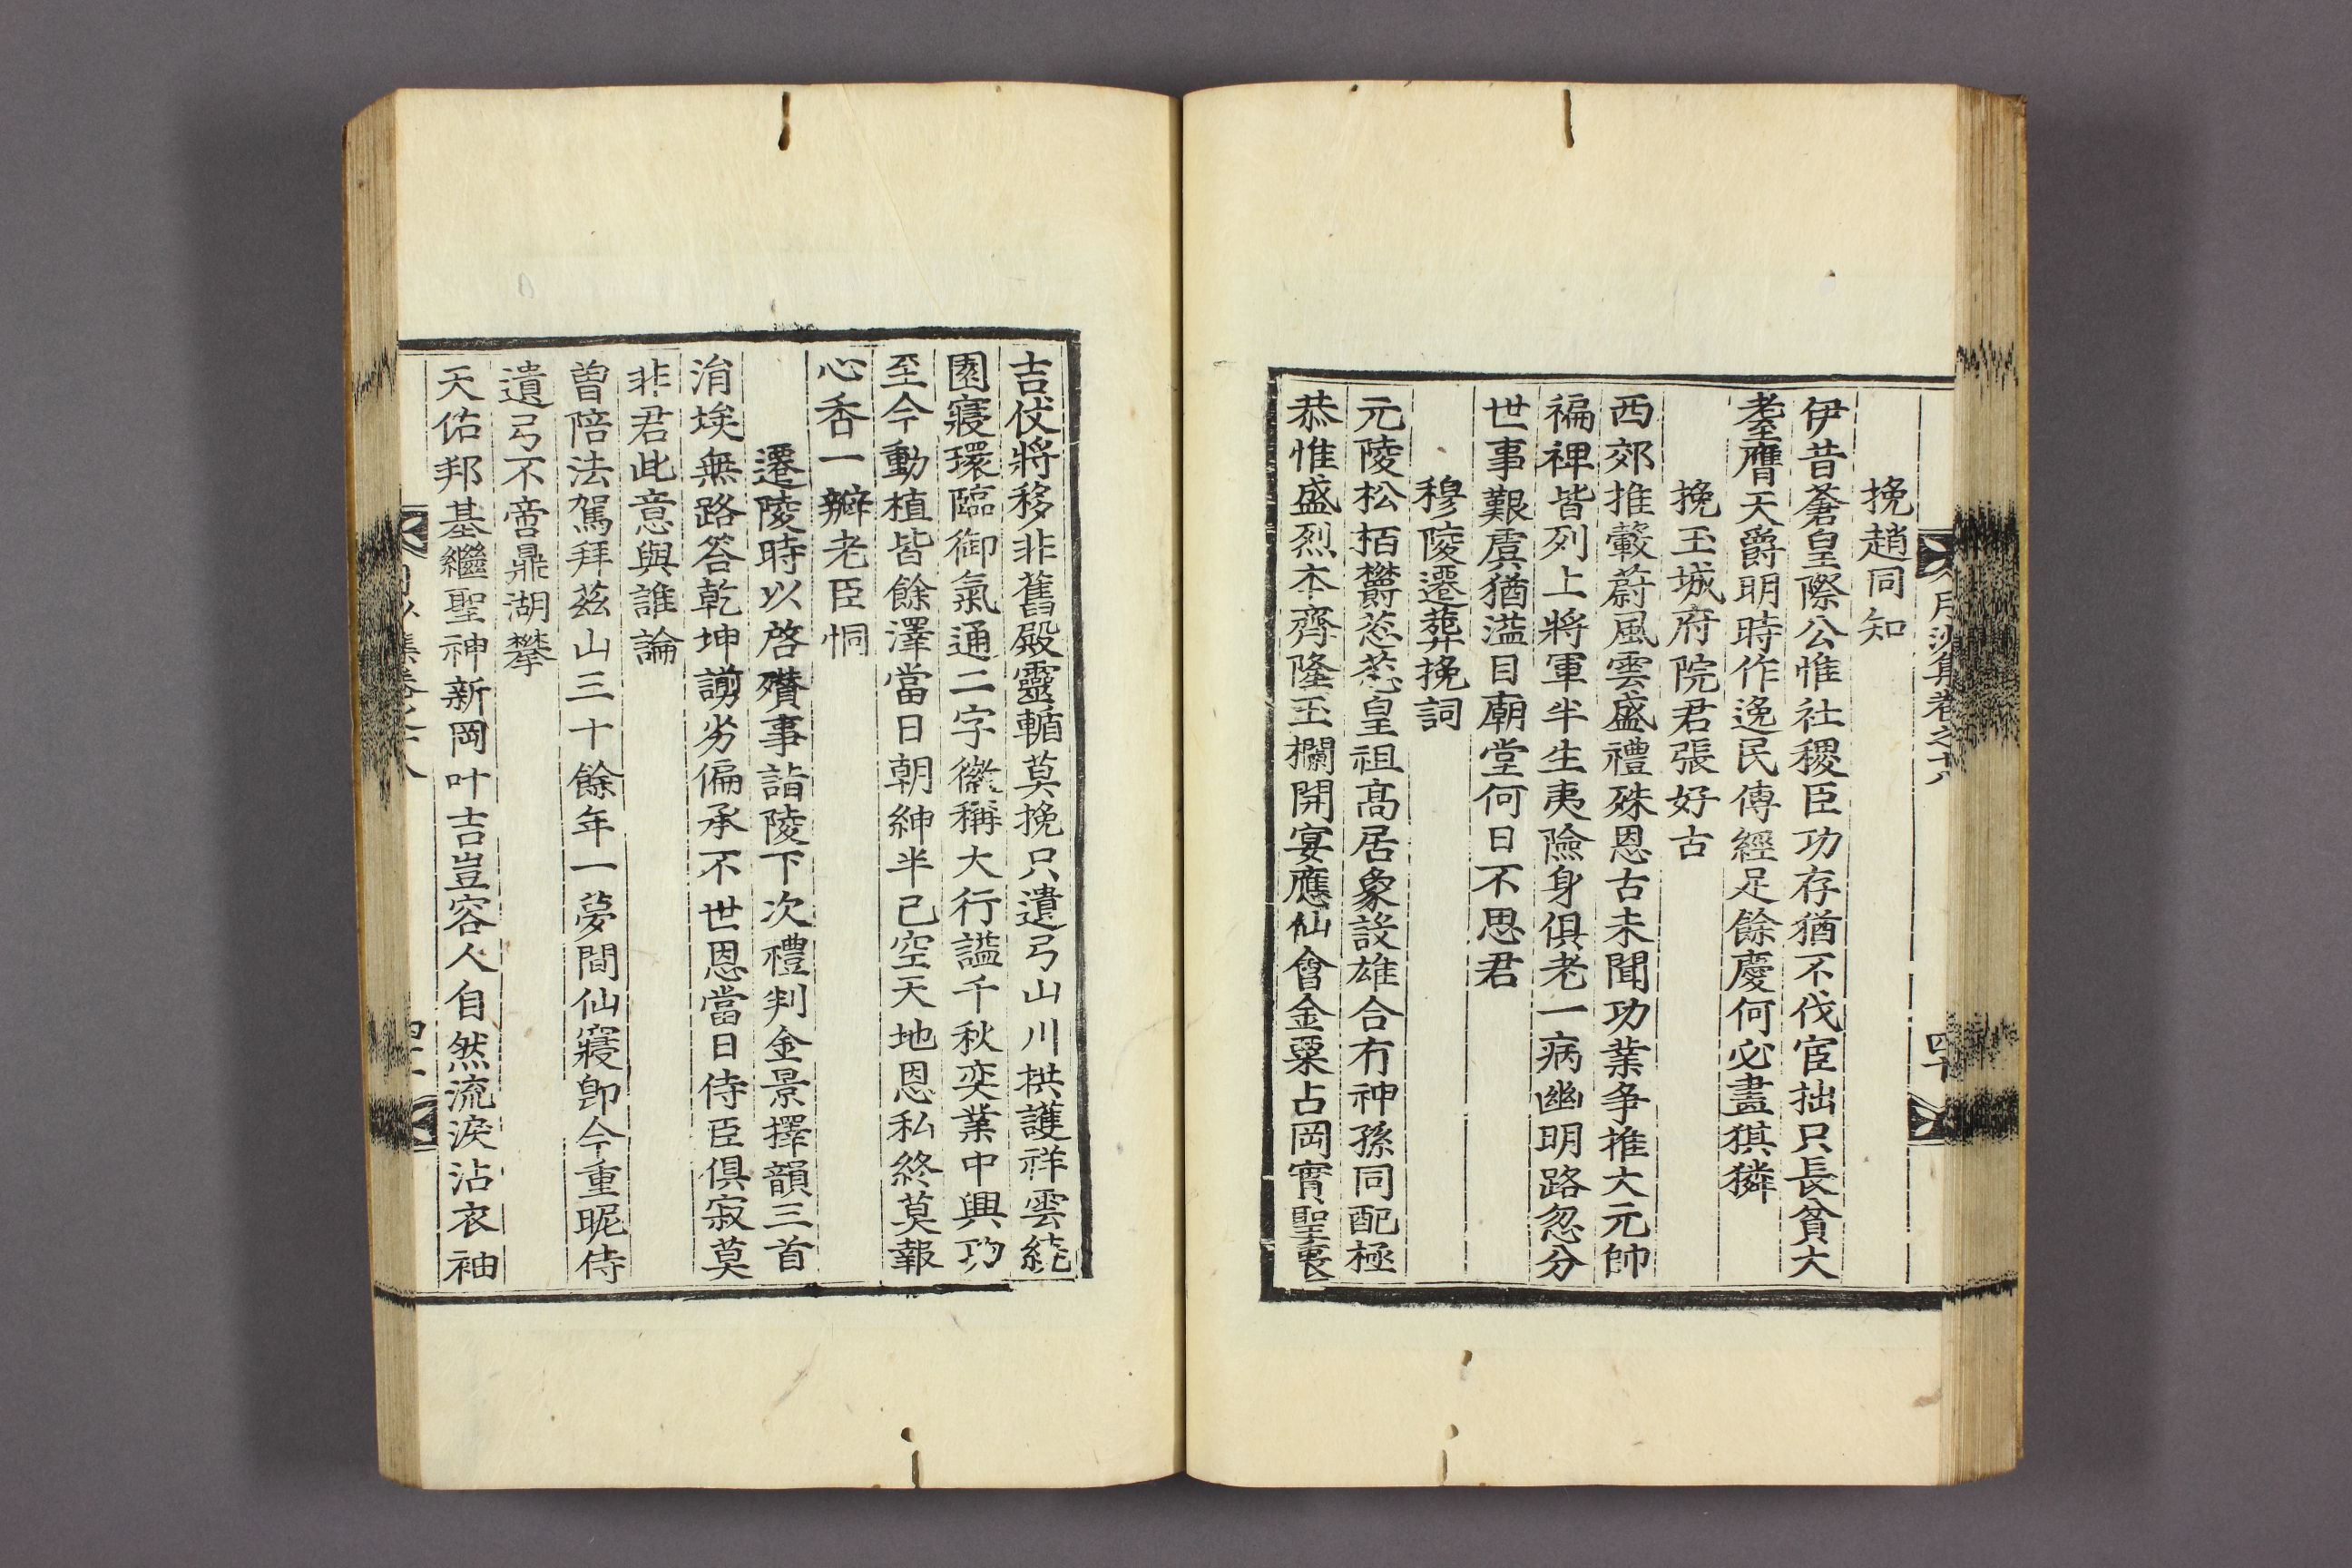 月沙集卷之十八
四十
挽趙同知
伊昔蒼皇際公惟社稷臣功存猶不伐宦拙只長貧大
耋膺天爵明時作逸民傳經足餘慶何必盡猉獜
挽玉城府院君張好古
西郊推轂蔚風雲盛禮殊恩古未聞功業争推大元帥
褊裨皆列上將軍半生夷險身俱老一病幽明路忽分
世事艱虞猶溢目廟堂何日不思君
穆陵遷葬挽詞
元陵松栢欝葱葱皇祖高居象設雄合有神孫同配極
恭惟盛烈夲齊隆玉欄開宴應仙會金粟占岡寔聖衷
吉仗將移非舊殿靈輴莫挽只遺弓山川拱護祥雲繞
園寢環臨御氣通二字徽稱大行謚千秋奕業中興功
至今動植皆餘澤當日朝紳半已空天地恩私終莫報
心香一瓣老臣恫
遷陵時以啓欑事詣陵下次禮判金景擇韻三首
涓埃無路答乾坤謭劣偏承不世恩當日侍臣俱寂莫
非君此意與誰論
曽陪法駕拜茲山三十餘年一夢間仙寢卽今重昵侍
遺弓不啻鼎湖攀
天佑邦基繼聖神新岡叶吉豈容人自然流淚沾衣袖
月沙集卷之十八
四十一